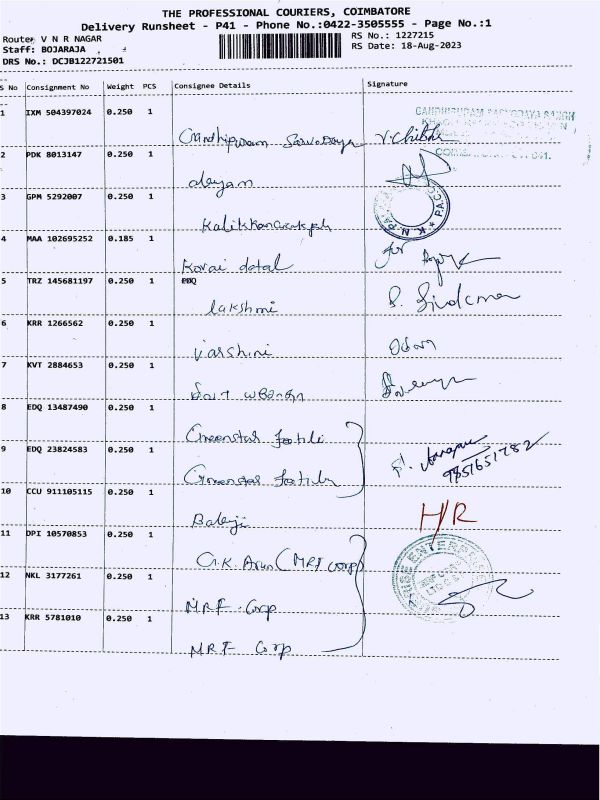 THE PROFESSIONAL COURIERS, COIMBATORE
Delivery Runsheet - P41 - Phone No.:0422-3505555 - Page No.:1
Route: V N R NAGAR
RS No.: 1227215
Staff: BOJARAJA
RS Date: 18-Aug-2023
DRS No.: DCJB122721501
S No Consignment No Weight PCS Consignee Details Signature
1 IXM 504397024 0.250 1
Gandhipuram Sarvodaya V. Chibh
2 PDK 8013147 0.250 1
3 GPM 5292007 0.250 1
4 MAA 102695252 0.185 1
Kovai dotal for
5 TRZ 145681197 0.250 1 EDQ
lakshmi
6 KRR 1266562 0.250 1
Varshini
7 KVT 2884653 0.250 1
8 EDQ 13487490 0.250 1
Greenstar
9 EDQ 23824583 0.250 1
Greenstar 9851651782
10 CCU 911105115 0.250 1
Balaji H/R
11 DPI 10570853 0.250 1
G.K. Arun (MRF Corp)
12 NKL 3177261 0.250 1
MRF Corp
13 KRR 5781010 0.250 1
MRF Corp